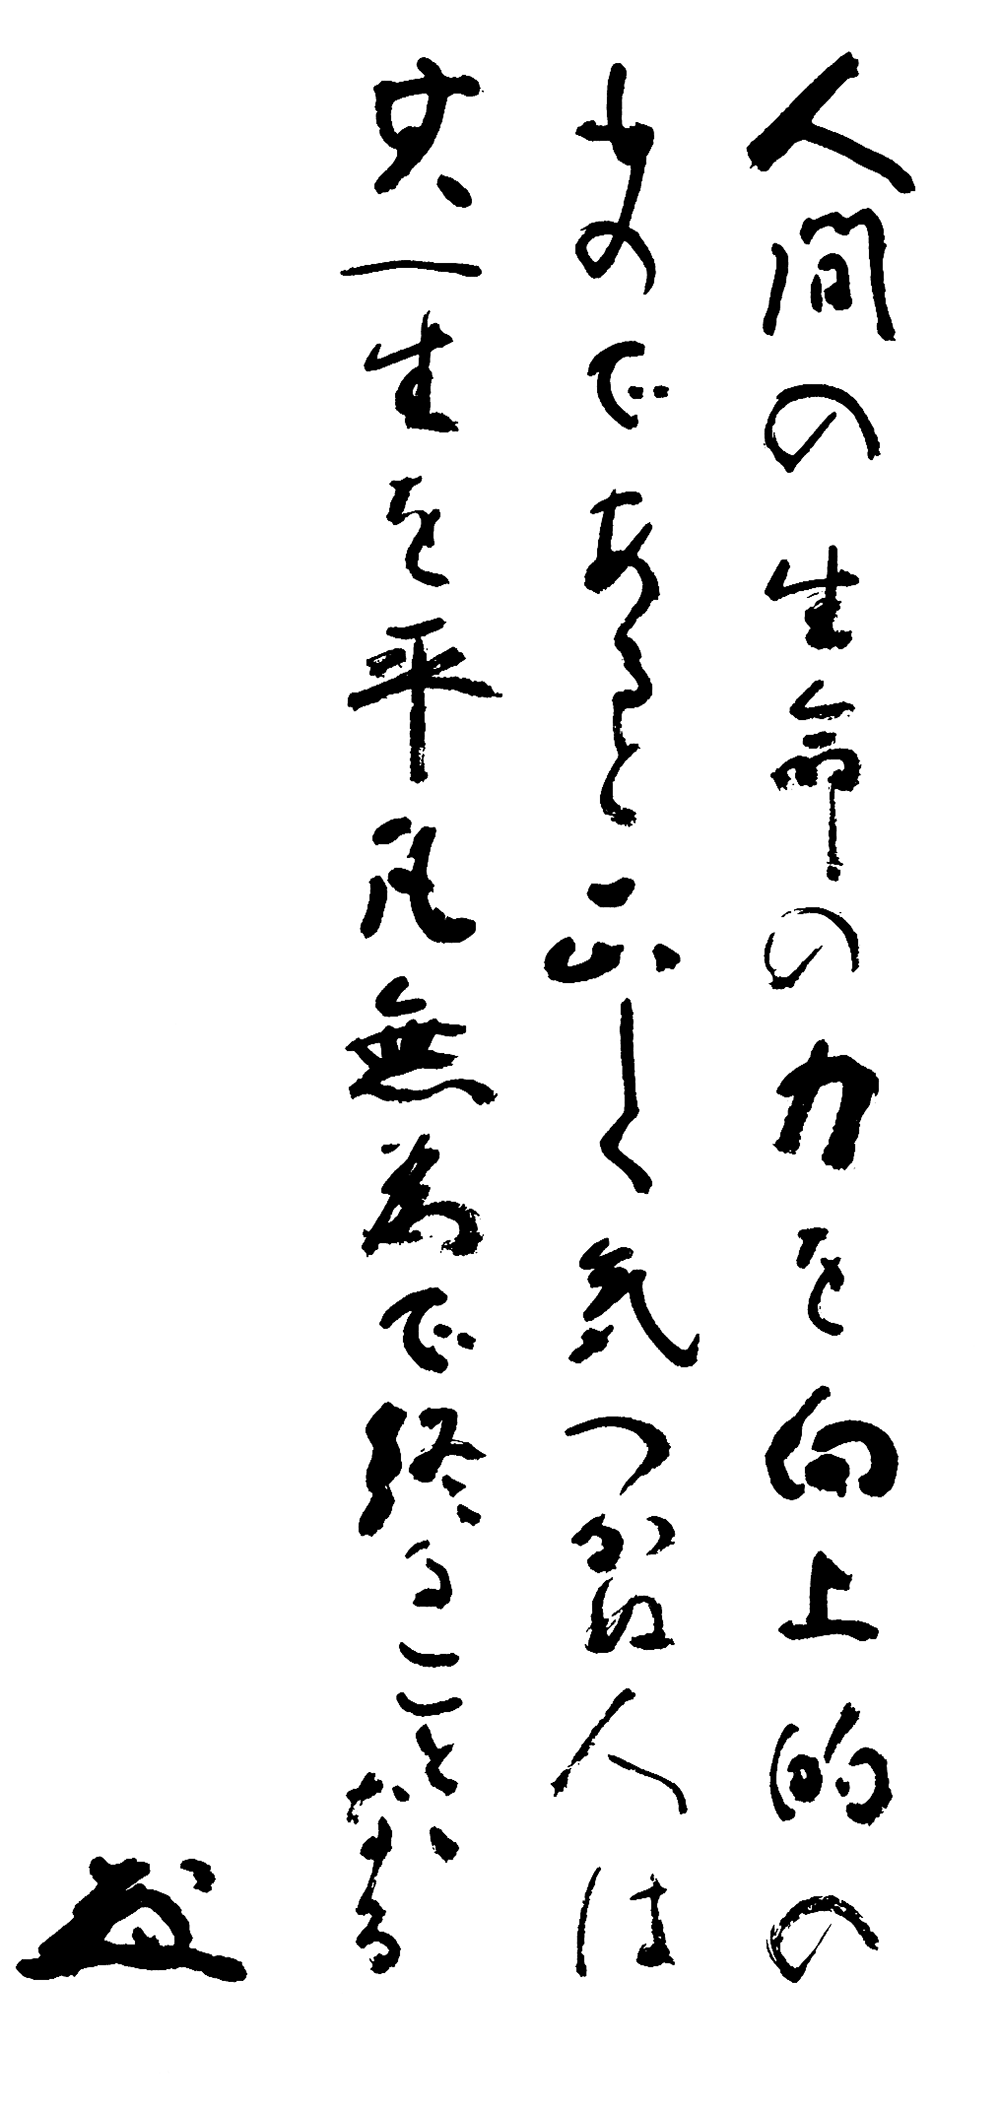 人間の生命の力を向上的の
ものであると正しく気つかぬ人は
其一生を平凡無為で終ることになる